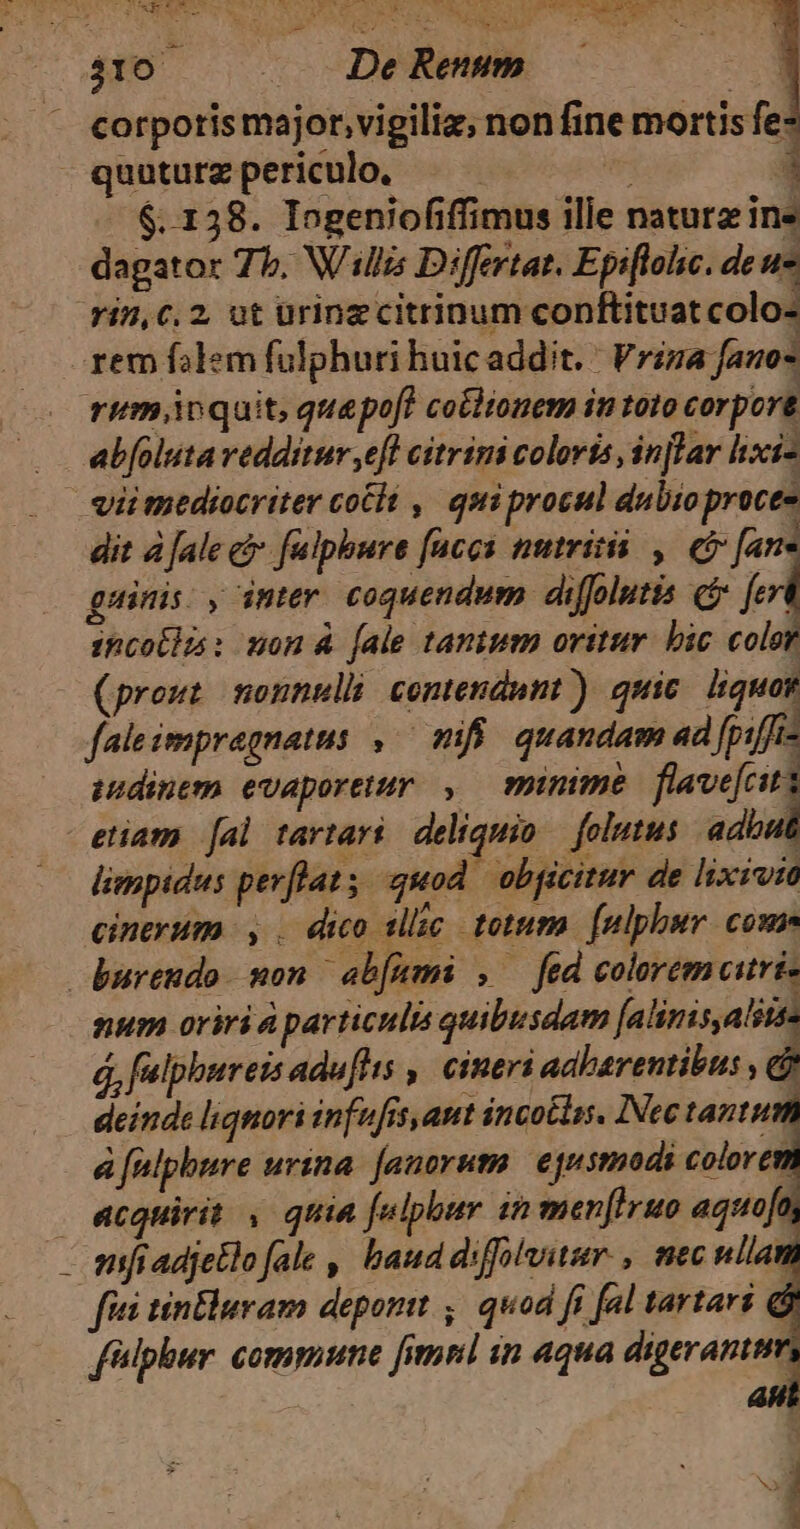 310 De Renum
corporis major, vigiliæ, non ſine mortis ſe-
quuturæ periculo.
§. 138. Ingenioſiſſimus ille naturæ in-
dagator Th. Willis Diſſertat. Epiſtolic. de u-
rin, c. 2 ut urinæ citrinum conſtituat colo-
rem ſalem ſulphuri huic addit. Vrina ſano-
rum, inquit, quæ poſt coctionem in toto corpore
abſoluta redditur, eſt citrini coloris, inſtar lixi-
vii mediocriter cocti, qui procul dubio proce-
dit à ſale & ſulphure ſucci nutritii, & ſan-
guinis, inter coquendum diſſolutis & ferè
incoctis: non à ſale tantum oritur hic color
(prout nonnulli contendunt) quic liquor
ſale imprægnatus, niſi quandam ad ſpiſſi-
tudinem evaporetur, minimè flaveſcit;
etiam ſal tartari deliquio ſolutus adhuc
limpidus perſtat; quod objicitur de lixivio
cinerum, dico illic totum ſulphur com-
burendo non abſumi, ſed colorem citri-
num oriri à particulis quibusdam ſalinis, aliis-
q́, ſulphureis aduſtis, cineri adhærentibus, &
deinde liquori infuſis, aut incoctis. Nec tantum
à ſulphure urina ſanorum ejusmodi colorem
acquirit, quia ſulphur in menſtruo aquoſo,
niſi adjecto ſale, haud diſſolvitur, nec ullam
ſui tincturam deponit; quod ſi ſal tartari &
ſulphur commune ſimul in aqua digerantur,
aut